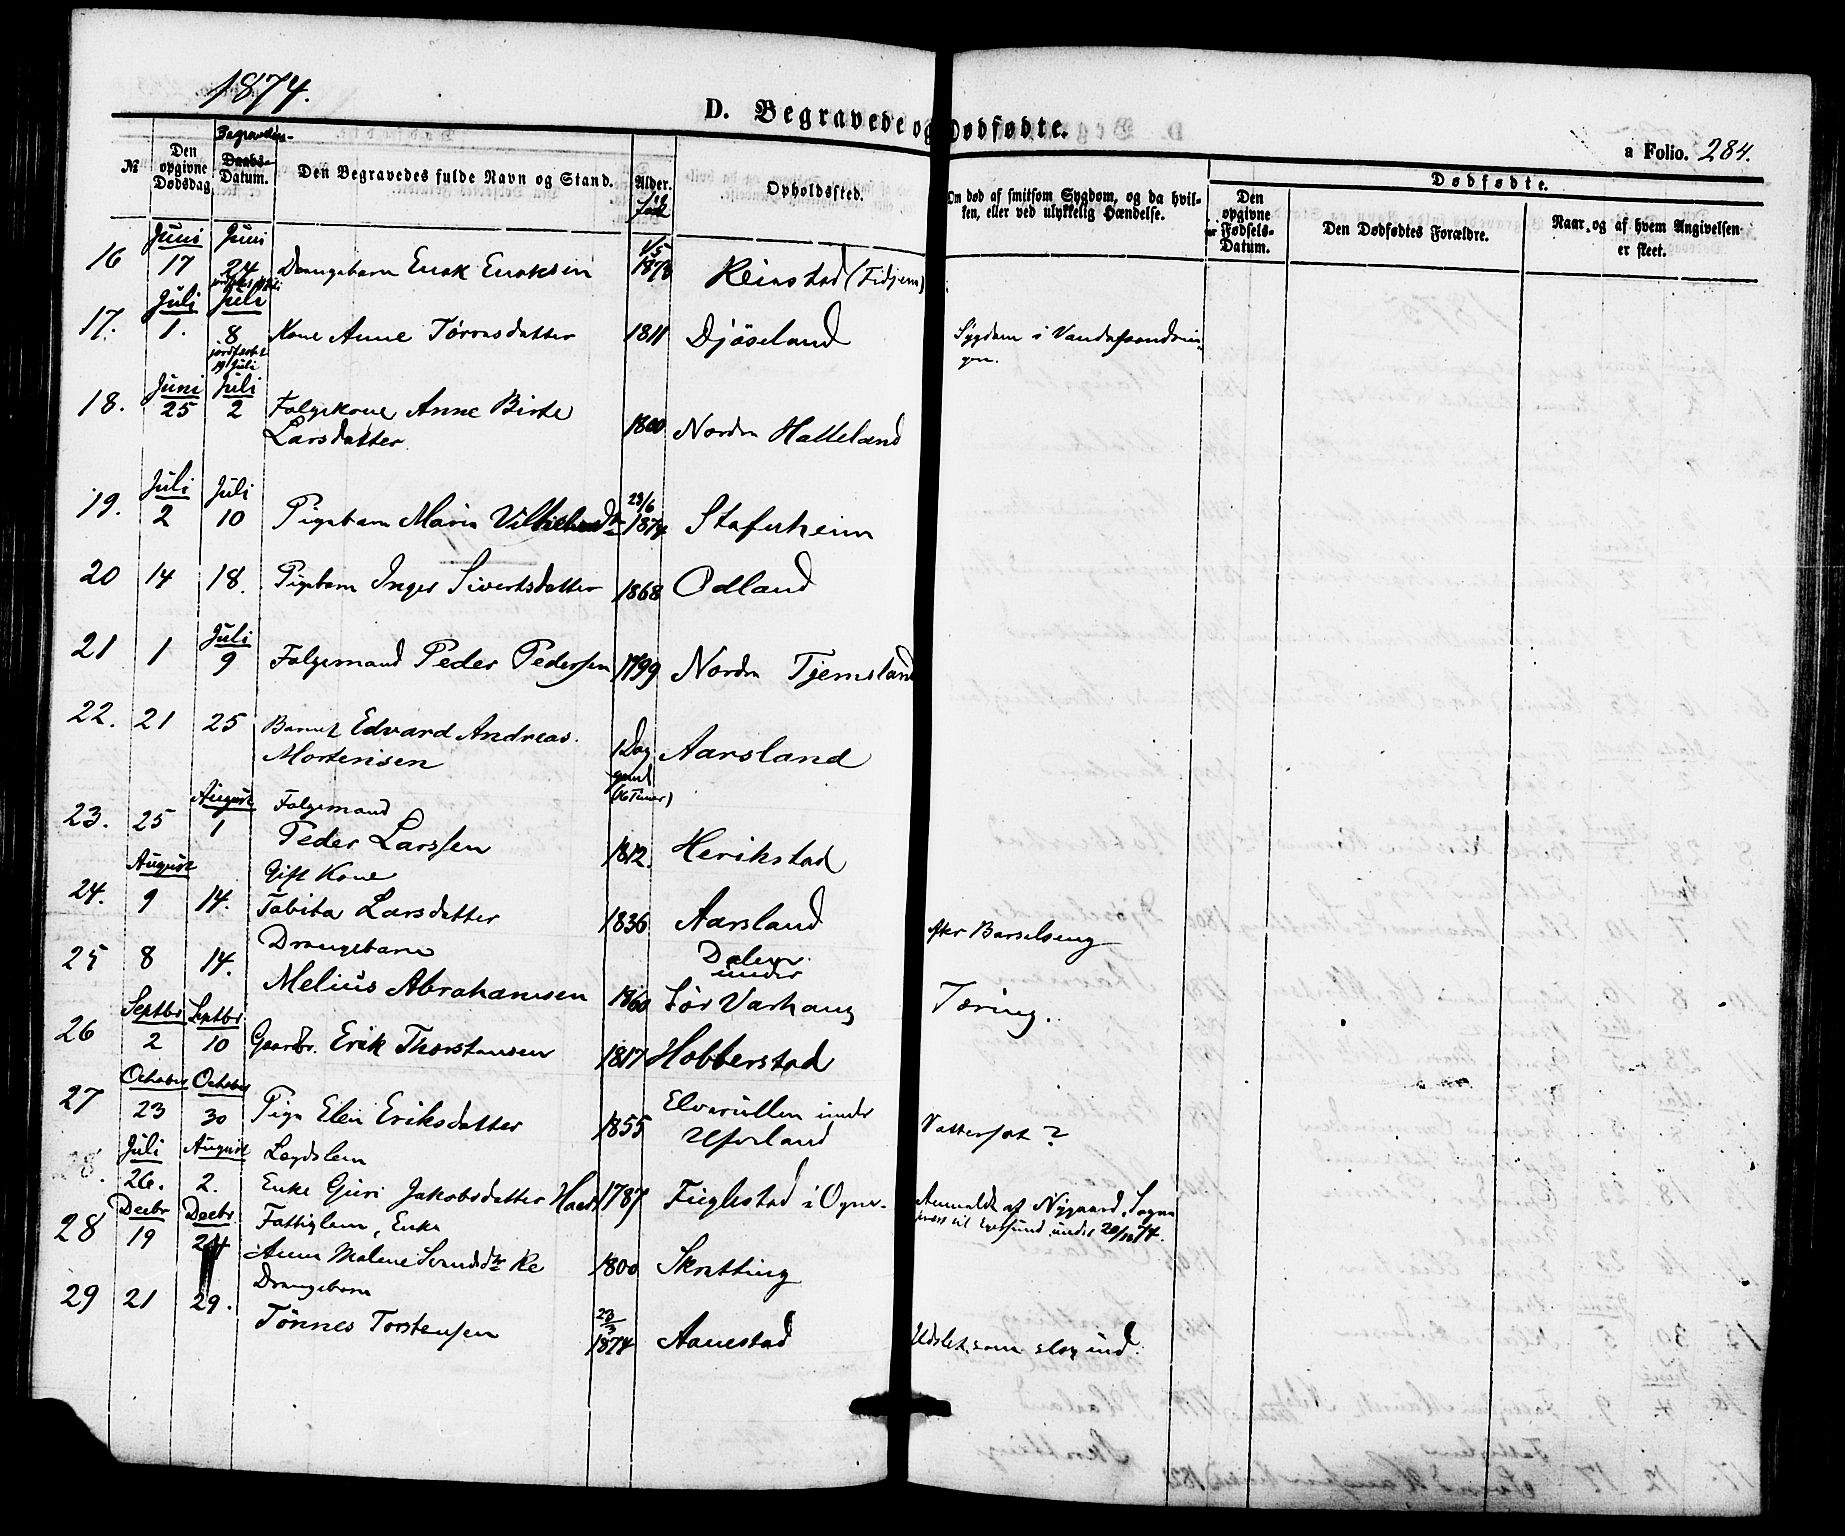 1874.
D. Begravede og Dødfødte.
a Folio. 284.
№
Den opgivne Dødsdag
Begravelses-
Daabs-
Datum.
Den Begravedes fulde Navn og Stand.
Alder.
Opholdssted.
Om død af smitsom Sygdom, og da hvil-
ken, eller ved ulykkelig Hændelse.
Dødfødte.
Den opgivne Fødsels-Datum.
Den Dødfødtes Forældre.
Naar og af hvem Angivelsen er skeet.
16 Juni 17 Juni 24 Drengebarn Enok Enoksen 1873 Reinstad
17. Juli 1. Juli 8 Kone Anne Tørresdatter 1811 Djøseland Sygdom i
jordfæstet 19 Juli
18. Juni 25 Juli 2 Folgekone Anne Birte
Larsdatter 1800 Nordre Halleland
19. Juli 2 Juli 10 Pigebarn Maria 23/6 1874 Stafnheim
20 14 18. Pigebarn Inger Sivertsdatter 1868 Odland
21 1 Juli 9 Folgemand Peder Pedersen 1799 Nordre Tjemsland
22. 21 25 Barnet Edvard Andreas
Mortensen 1 Dag Aarsland
gaml
(16 Timer)
23. 25 August 1 Folgemand
Peder Larssen 1812. Herikstad
24. August 9 14. Gift Kone
Tabita Larsdatter 1836 Aarsland efter Barselseng
25 8 14. Drengebarn Dalen under
Melius Abrahamsen 1860 Sør Varhaug Tæring.
26 Septbr 2 Septbr 10 Gaardbr. Erik Thorstensen 1817 Hobberstad
27 October 23 October 30 Pige Elen Eriksdatter 1855 under Vattersot?
28. Juli 26. August 2. Lægdslem
Enke Guri Jakobsdatter 1787 Fuglestad i Ogne. Anmeldt af Nygaard, Sogne
præst til Egersund under 20/12 74.
28 Decbr 19 Decbr 24 Fattiglem, Enke
Anne Malene 1800 Skretting
29 21 29. Drengebarn
Tønnes Torstensen 23/3 1874 Aanestad Udslet, som slog ind.